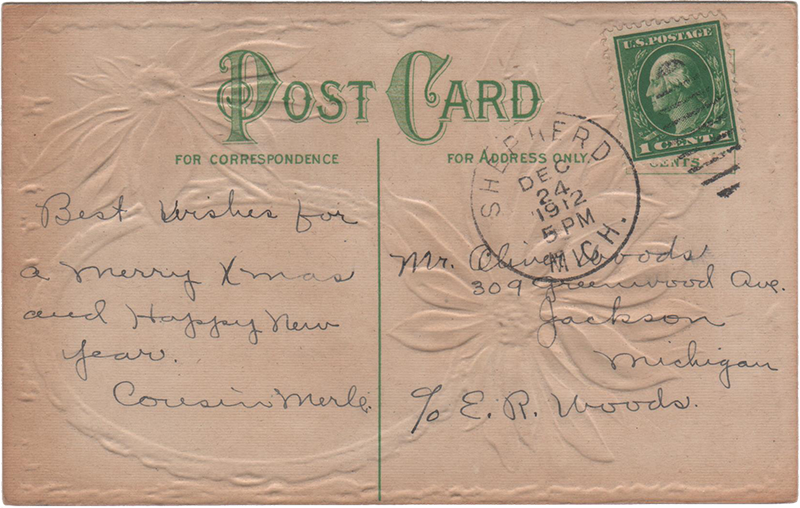 POST CARD
FOR CORRESPONDENCE
FOR ADDRESS ONLY.
U.S. POSTAGE
1 CENT 1
CENTS
SHEPHERD
DEC
24
1912
5 PM
MICH.
Best Wishes for
a Merry Xmas
and Happy New
year.
Cousin Merle.
Mr. Oliver Woods
309 Greenwood Ave.
Jackson
Michigan
c/o E. R. Woods.